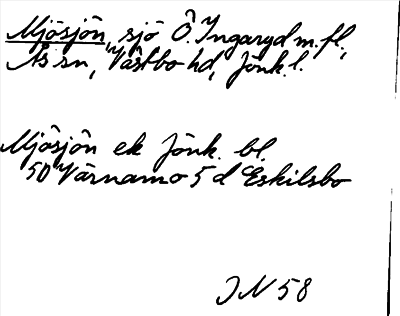 Mjösjön, sjö Ö. Ingaryd m.fl.,
Ås sn, Västbo hd, Jönk. l.
Mjösjön ek Jönk. bl.
50 Värnamo 5 d Eskilsbo
JN 58